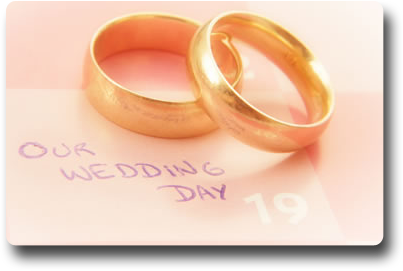 OUR
WEDDING
DAY
19